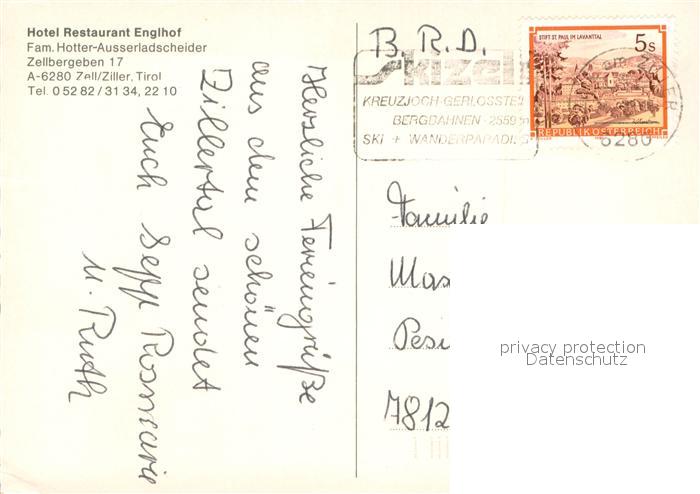 Hotel Restaurant Englhof
Fam. Hotter-Ausserladscheider
Zellbergeben 17
A-6280 Zell/Ziller, Tirol
Tel. 0 52 82 / 31 34, 22 10
Herzliche Feriengrüße
aus dem schönen
Zillertal sendet
Euch Sepp Rosmarie
u. Ruth
B.R.D.
Skizell
KREUZJOCH-GERLOSSTEIN
BERGBAHNEN - 2559 m
SKI + WANDERPARADIES
STIFT ST. PAUL IM LAVANTTAL
5 s
REPUBLIK ÖSTERREICH
6280
Familie
Mas
Pesi
7812
privacy protection
Datenschutz